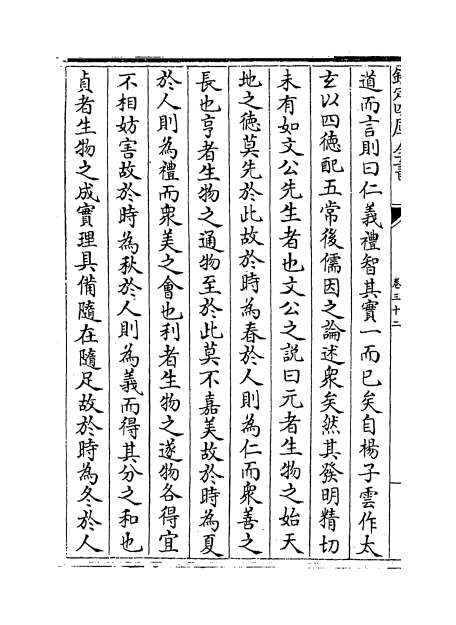 欽定四庫全書
卷三十二
道而言則曰仁義禮智其實一而已矣自楊子雲作太
玄以四徳配五常後儒因之論述衆矣然其發明精切
未有如文公先生者也文公之説曰元者生物之始天
地之徳莫先於此故於時為春於人則為仁而衆善之
長也亨者生物之通物至於此莫不嘉美故於時為夏
於人則為禮而衆美之會也利者生物之遂物各得宜
不相妨害故於時為秋於人則為義而得其分之和也
貞者生物之成實理具備隨在隨足故於時為冬於人